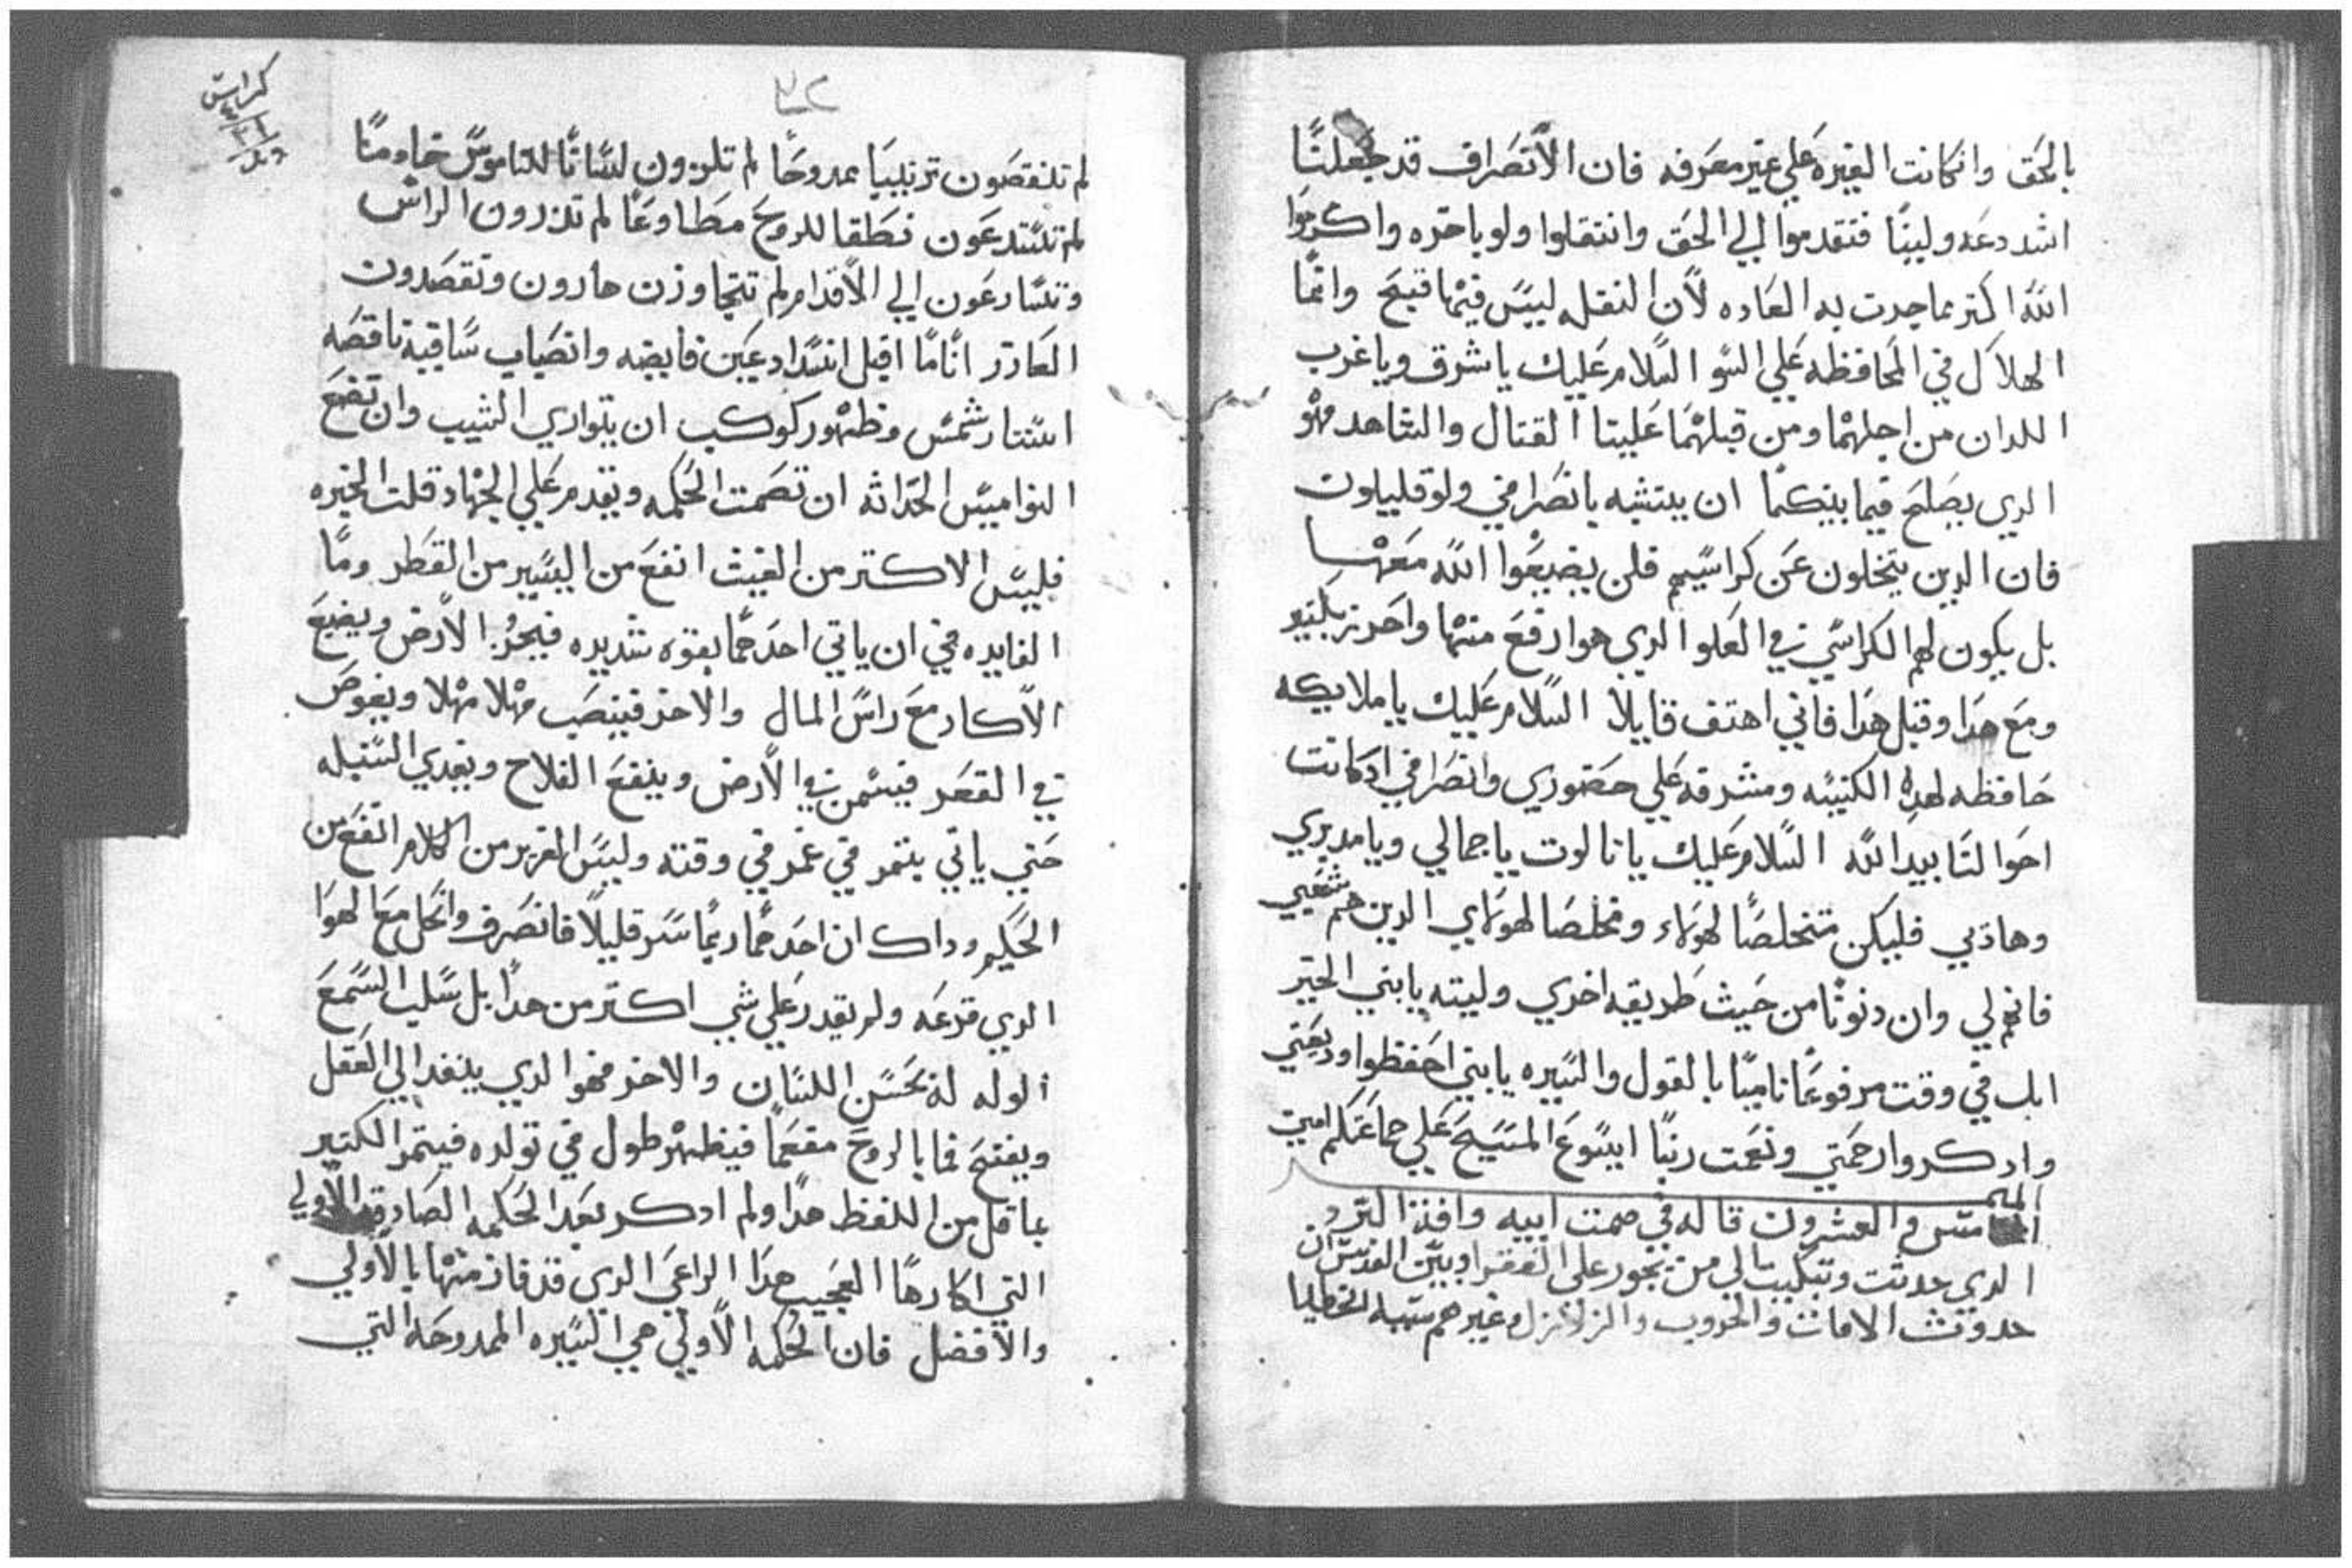 بالحق وانكانت الغيره علي غير معرفه فان الانصراف قد جعلنا
اشد دعه ولينًا فتقدموا الي الحق وانتقلوا ولو باخره واكرموا
الله اكتر مما جرت به العاده لأن النقله ليس فيها قبيح وانما
الهلاك في المحافظه علي السو السلام عليك يا شرق ويا غرب
اللدان من اجلهما ومن قبلهما علينا القتال والشاهد فهو
الدي يصلح فيما بينكما ان يتشبه بانصرافي ولو قليلون
فان الدين يتخلون عن كراسيهم فلن يضيعوا الله معها
بل يكون لهم الكراسي في العلو الدي هو ارفع منها واحرز بكتير
ومع هدا وقبل هدا فاني اهتف قايلا السلام عليك يا ملايكه
حافظه لهده الكنيسه ومشرفه علي حضوري وانصرافي ادكانت
احوالنا بيد الله السلام عليك يا تالوت يا جمالي ويا مديري
وهاذبي فليكن متخلصًا لهولاء ومخلصا لهولاي الدين هم شعبي
فانهم لي وان دنوتا من حيث طريقه اخري وليته يا بني الخير
ابل في وقت مرفوعًا ناميًا بالقول والسيره يا بني احفظوا وديعتي
وادكروا رحمتي ونعمت ربنا ايسوع المسيح علي جماعتكم امين
الميمر
الخامس والعشرون قاله في صمت ابيه وافة البرد
الدي حدثت وتبكيتا لي من يجور علي الفقرا وبين القديس ان
حدوث الافات والحروب والزلازل وغيرهم سببه الخطايا
كراس
لم تنغصون ترتيبا ممدوحًا لم تلزون لسانًا للناموس خادمًا
لم تستدعون نطقا للروح مطاوعًا لم تزرون الراس
وتسارعون الي الأقدام لم تتجاوزن هارون وتقصدون
العازر انا ما اقبل انسداد عين فايضه وانصباب ساقيه ناقصه
استتار شمس وظهور كوكب ان يتواري الشيب وان تضع
النواميس الحداثه ان تصمت الحكمه ويقدم علي الجهاد قلت الخبره
فليس الاكتر من الغيث انفع من اليسير من القطر وما
الفايده في ان ياتي احدهما بقوه شديده فيجرُ الأرض ويضيع
الأكار مع راس المال والاخر فينصب مهلا مهلا ويغوص
في القعر فيسمن في الأرض وينفع الفلاح ويغدي السنبله
حتي ياتي بتمر في وقته وليس الغزير من الكلام انفع من
الحكيم وداك ان احدهما ربما سر قليلًا فانصرف وانحل مع الهوا
الدي قرعه ولم يقدر علي شي اكتر من هدا بل سلب السمع
الوله له بحسن اللسان والاخر فهو الدي ينفد الي العقل
ويفتح فما بالروح مفعمًا فيظهر طول في تولده فيتمر الكتير
بما قل من اللفظ هدا ولم ادكر بعد الحكمه الصادقه الأولي
التي اكارها العجيب هدا الراعي الدي قد فاز منها بالأولي
والأفضل فان الحكمه الأولي هي السيره الممدوحه التي